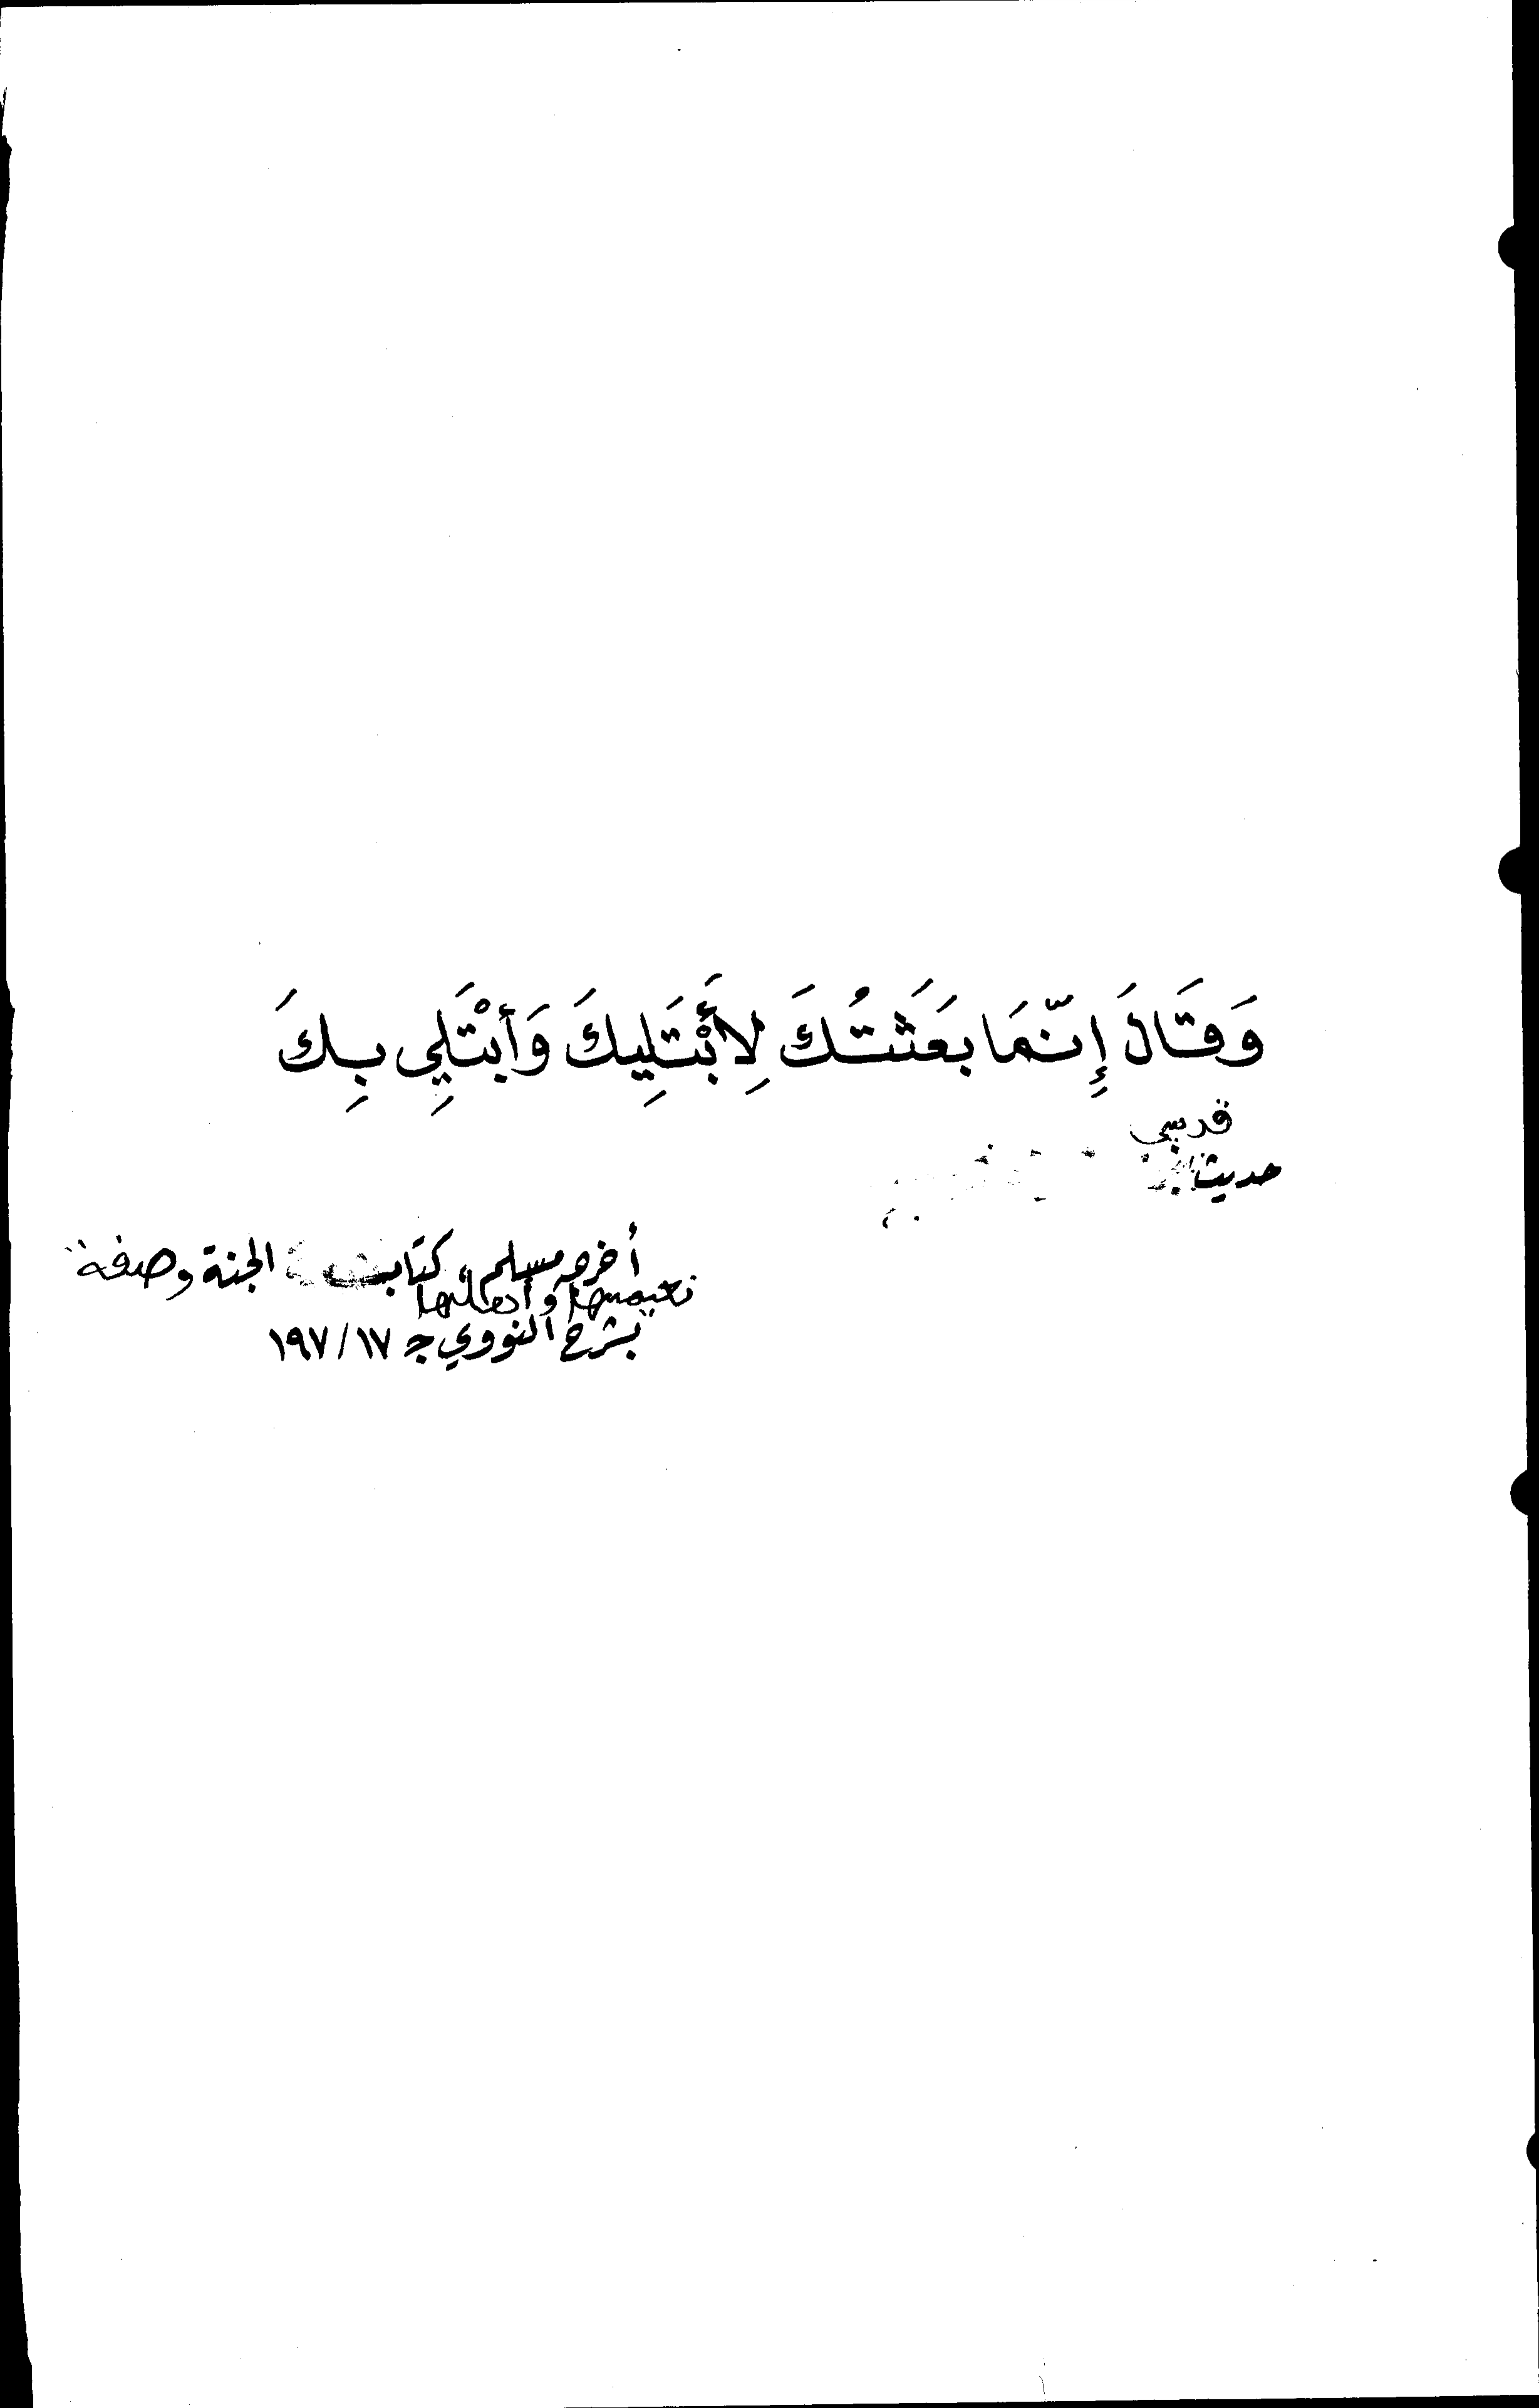 وَقَالَ إِنَّمَا بَعَثتُكَ لِأَبْتَلِيكَ وَأَبْتَلِي بِكَ
قدسي
حديث
أخرجه مسلم، كتاب الجنة وصفة
نعيمها وأهلها
بشرح النووي جـ ١٧ / ١٩٧